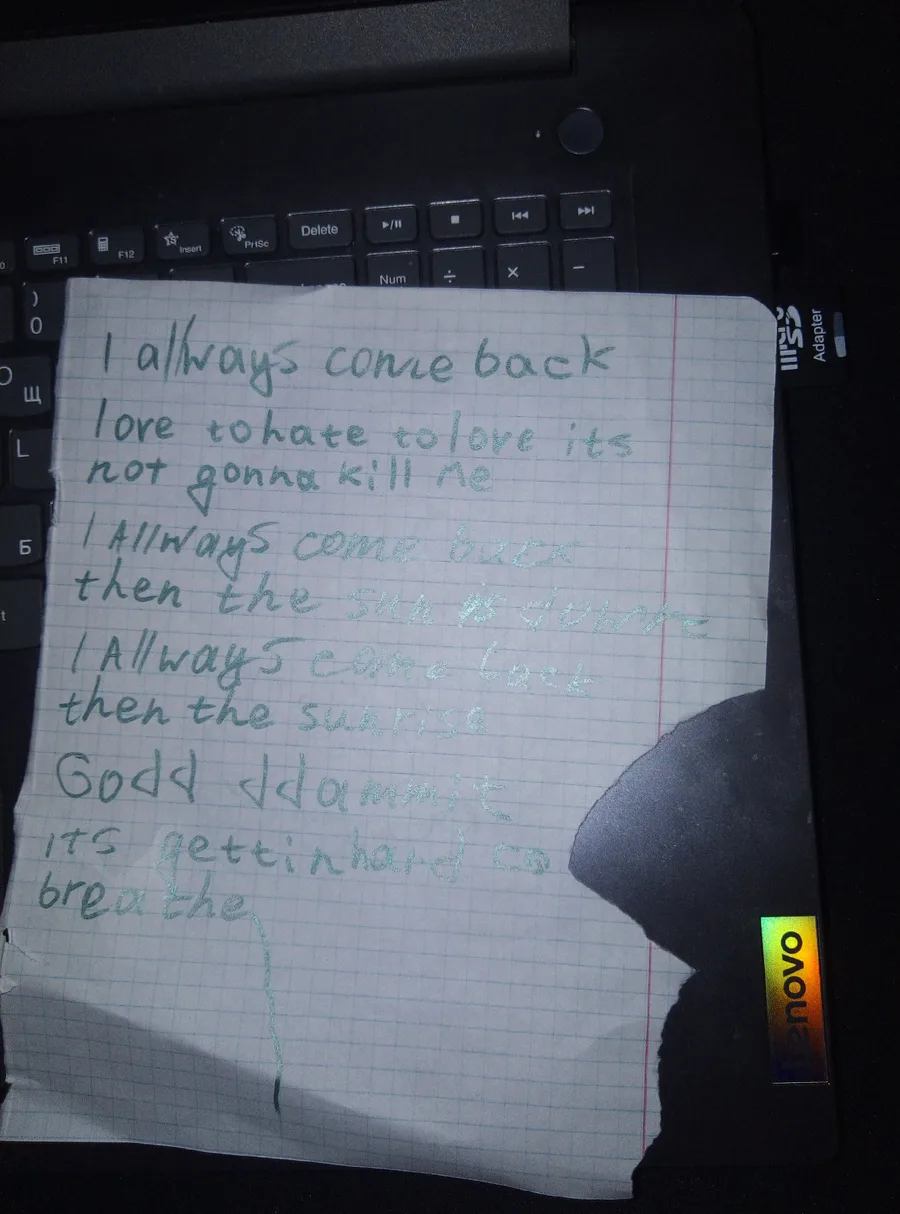 Delete
F11
F12
Insert
PrtSc
Num
÷
×
−
)
0
Щ
L
Б
t
Adapter
I allways come back
love to hate to love its
not gonna kill me
I Allways come back
then the sun is downe
I Allways come back
then the sunrise
Godd ddammit
its gettin hard to
breathe
Lenovo